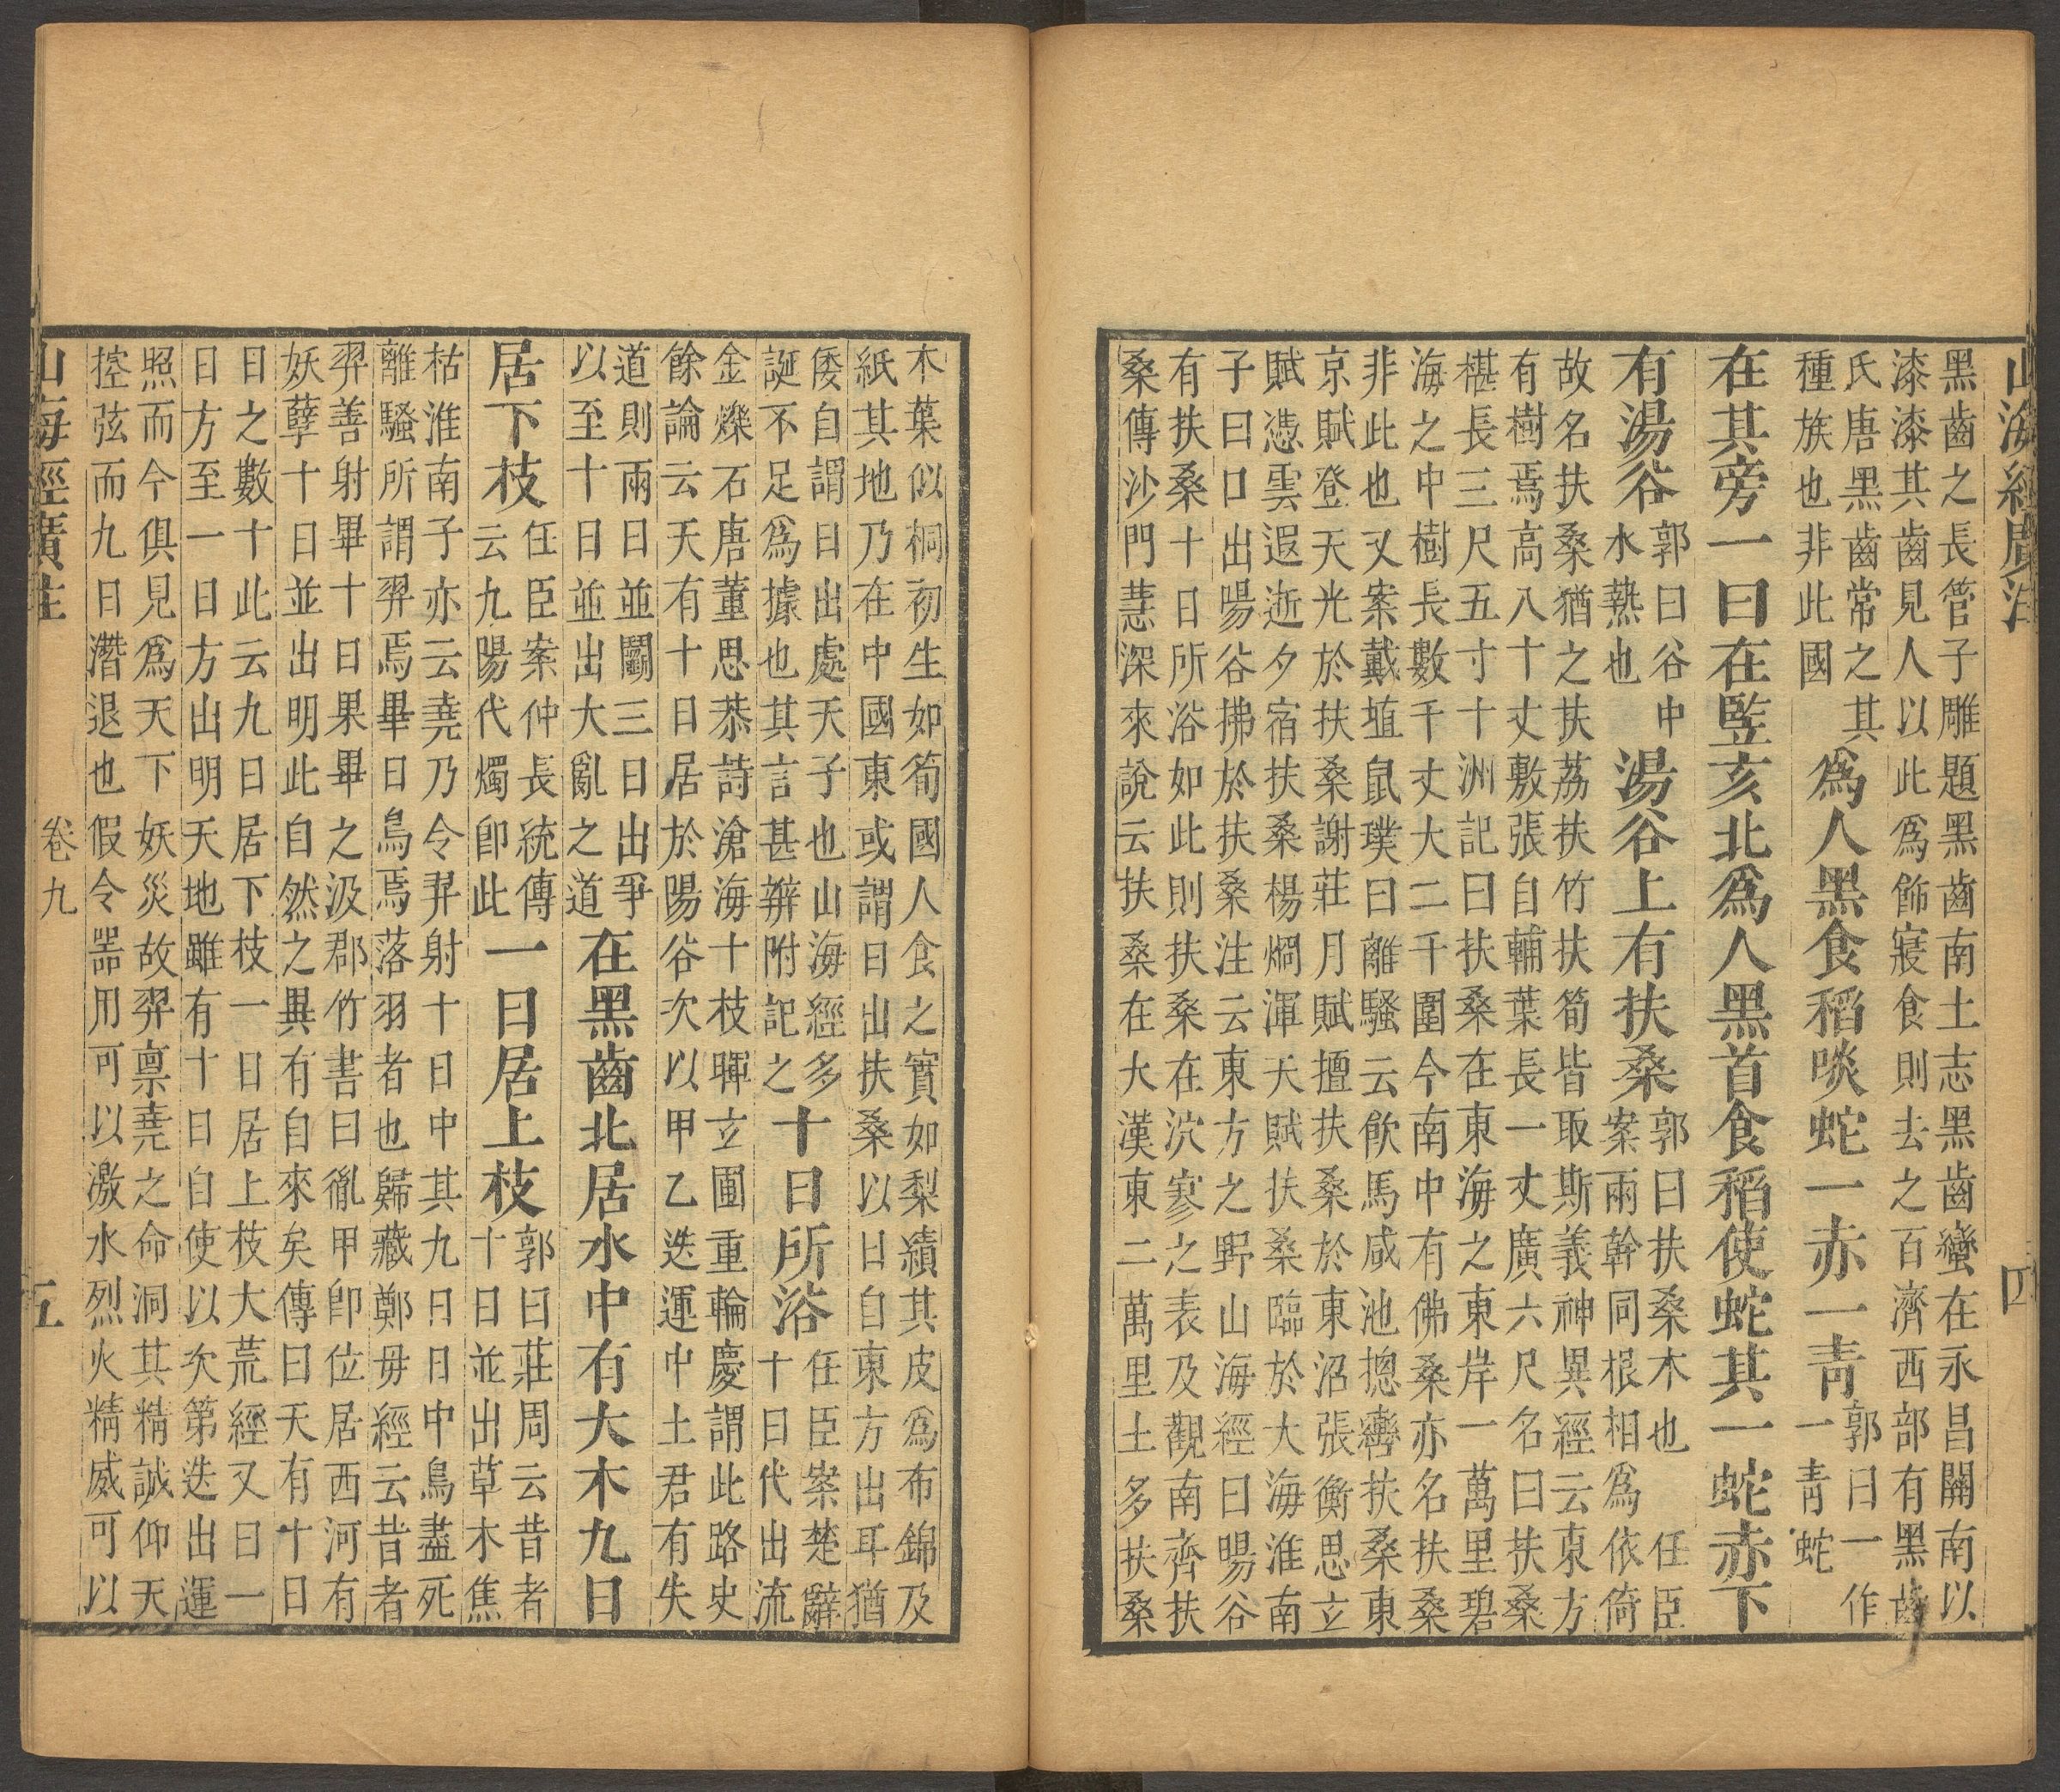 山海經廣注
四
黑齒之長管子雕題黑齒南土志黑齒蠻在永昌關南以
漆漆其齒見人以此爲飾寢食則去之百濟西部有黑齒
氏唐黑齒常之其
種族也非此國
爲人黑食稻啖蛇一赤一青
郭曰一作
一青蛇
在其旁一曰在竪亥北爲人黑首食稻使蛇其一蛇赤下
有湯谷
郭曰谷中
水熱也
湯谷上有扶桑
郭曰扶桑木也 任臣
案兩幹同根相爲依倚
故名扶桑猶之扶荔扶竹扶筍皆取斯義神異經云東方
有樹焉高八十丈敷張自輔葉長一丈廣六尺名曰扶桑
椹長三尺五寸十洲記曰扶桑在東海之東岸一萬里碧
海之中樹長數千丈大二千圍今南中有佛桑亦名扶桑
非此也又案戴埴鼠璞曰離騷云飲馬咸池摠轡扶桑東
京賦登天光於扶桑謝莊月賦擅扶桑於東沼張衡思立
賦憑雲遐逝夕宿扶桑楊烱渾天賦扶桑臨於大海淮南
子曰日出暘谷拂於扶桑注云東方之野山海經曰暘谷
有扶桑十日所浴如此則扶桑在泬寥之表及觀南齊扶
桑傳沙門慧深來說云扶桑在大漢東二萬里土多扶桑
木葉似桐初生如筍國人食之實如梨績其皮爲布錦及
紙其地乃在中國東或謂日出扶桑以日自東方出耳猶
倭自謂日出處天子也山海經多
誕不足爲據也其言甚辨附記之
十日所浴
任臣案楚辭
十日代出流
金爍石唐董思恭詩滄海十枝暉立圃重輪慶謂此路史
餘論云天有十日居於陽谷次以甲乙迭運中土君有失
道則兩日並鬬三日出爭
以至十日並出大亂之道
在黑齒北居水中有大木九日
居下枝
任臣案仲長統傳
云九陽代燭卽此
一日居上枝
郭曰莊周云昔者
十日並出草木焦
枯淮南子亦云堯乃令羿射十日中其九日日中烏盡死
離騷所謂羿焉畢日烏焉落羽者也歸藏鄭毋經云昔者
羿善射畢十日果畢之汲郡竹書曰胤甲卽位居西河有
妖孽十日並出明此自然之異有自來矣傳曰天有十日
日之數十此云九日居下枝一日居上枝大荒經又曰一
日方至一日方出明天地雖有十日自使以次第迭出運
照而今俱見爲天下妖災故羿禀堯之命洞其精誠仰天
控弦而九日潛退也假令噐用可以激水烈火精威可以
山海經廣注
卷九
五